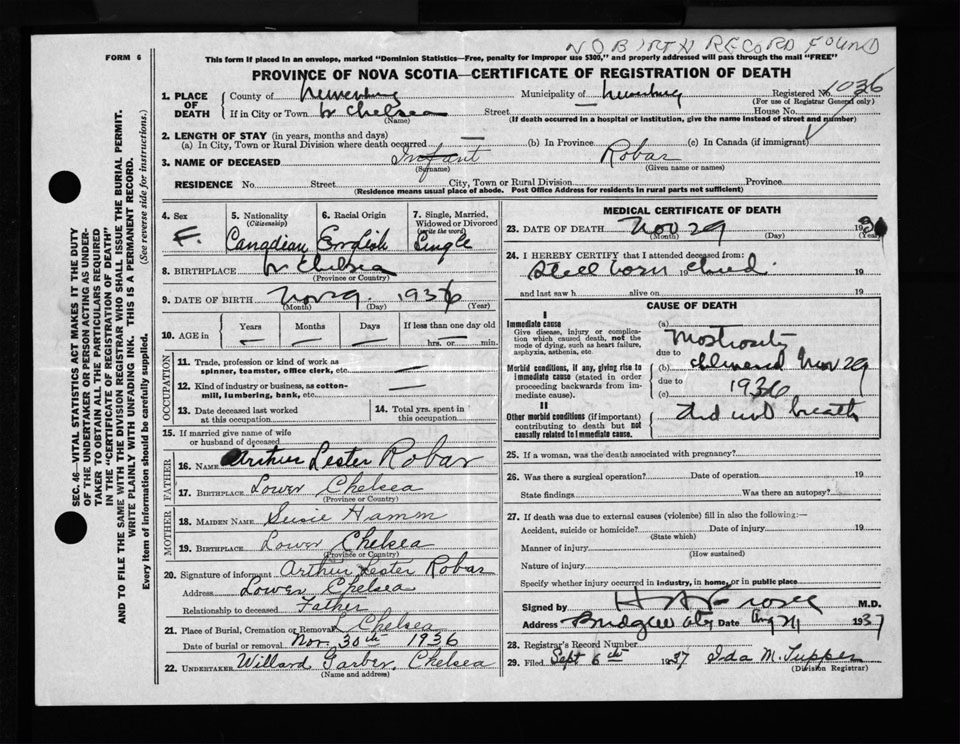 NO BIRTH RECORD FOUND
FORM 6
This form if placed in an envelope, marked "Dominion Statistics—Free, penalty for improper use $300," and properly addressed will pass through the mail "FREE"
PROVINCE OF NOVA SCOTIA—CERTIFICATE OF REGISTRATION OF DEATH
1. PLACE OF DEATH County of Lunenburg Municipality of Lunenburg Registered No. 1036
(For use of Registrar General only)
If in City or Town Chelsea Street House No.
(Name) (If death occurred in a hospital or institution, give the name instead of street and number)
2. LENGTH OF STAY (in years, months and days)
(a) In City, Town or Rural Division where death occurred — (b) In Province (c) In Canada (if immigrant)
3. NAME OF DECEASED Infant Robar
(Surname) (Given name or names)
RESIDENCE No. Street City, Town or Rural Division Province
(Residence means usual place of abode. Post Office Address for residents in rural parts not sufficient)
SEC. 46—VITAL STATISTICS ACT MAKES IT THE DUTY
OF THE UNDERTAKER OR PERSON ACTING AS UNDERTAKER TO OBTAIN ALL THE PARTICULARS REQUIRED
IN THE "CERTIFICATE OF REGISTRATION OF DEATH"
AND TO FILE THE SAME WITH THE DIVISION REGISTRAR WHO SHALL ISSUE THE BURIAL PERMIT.
WRITE PLAINLY WITH UNFADING INK. THIS IS A PERMANENT RECORD.
Every item of information should be carefully supplied. (See reverse side for instructions.)
4. Sex F.
5. Nationality (Citizenship) Canadian
6. Racial Origin English
7. Single, Married, Widowed or Divorced (write the word) Single
8. BIRTHPLACE Chelsea
(Province or Country)
9. DATE OF BIRTH Nov 29 1936
(Month) (Day) (Year)
10. AGE in Years — Months — Days — If less than one day old — hrs. or — min.
OCCUPATION
11. Trade, profession or kind of work as spinner, teamster, office clerk, etc. —
12. Kind of industry or business, as cotton-mill, lumbering, bank, etc. —
13. Date deceased last worked at this occupation
14. Total yrs. spent in this occupation
15. If married give name of wife or husband of deceased
FATHER
16. NAME Arthur Lester Robar
17. BIRTHPLACE Lower Chelsea
(Province or Country)
MOTHER
18. MAIDEN NAME Susie Hamm
19. BIRTHPLACE Lower Chelsea
(Province or Country)
20. Signature of informant Arthur Lester Robar
Address Lower Chelsea
Relationship to deceased Father
21. Place of Burial, Cremation or Removal Chelsea
Date of burial or removal Nov. 30th 1936
22. UNDERTAKER Willard Garber, Chelsea
(Name and address)
MEDICAL CERTIFICATE OF DEATH
23. DATE OF DEATH Nov 29 1936
(Month) (Day) (Year)
24. I HEREBY CERTIFY that I attended deceased from:
Still born 19 19
and last saw h alive on 19
CAUSE OF DEATH
I
Immediate cause
Give disease, injury or complication which caused death, not the mode of dying, such as heart failure, asphyxia, asthenia, etc.
Morbid conditions, if any, giving rise to immediate cause (stated in order proceeding backwards from immediate cause)
II
Other morbid conditions (if important) contributing to death but not causally related to immediate cause.
(a) Mostrosity
due to
(b) delivered Nov 29
due to
(c) 1936
did not breath
25. If a woman, was the death associated with pregnancy?
26. Was there a surgical operation? Date of operation 19
State findings Was there an autopsy?
27. If death was due to external causes (violence) fill in also the following:—
Accident, suicide or homicide? Date of injury 19
(State which)
Manner of injury
(How sustained)
Nature of injury
Specify whether injury occurred in industry, in home, or in public place
Signed by M.D.
Address Bridgewater Date Aug 1937
28. Registrar's Record Number
29. Filed Sept 6th 1937 Ida M. Tupper
(Division Registrar)